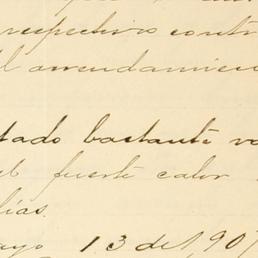 respectivo contr
el arrendamien
tado bastante va
el fuerte calor
días.
ayo 13 de 1,907